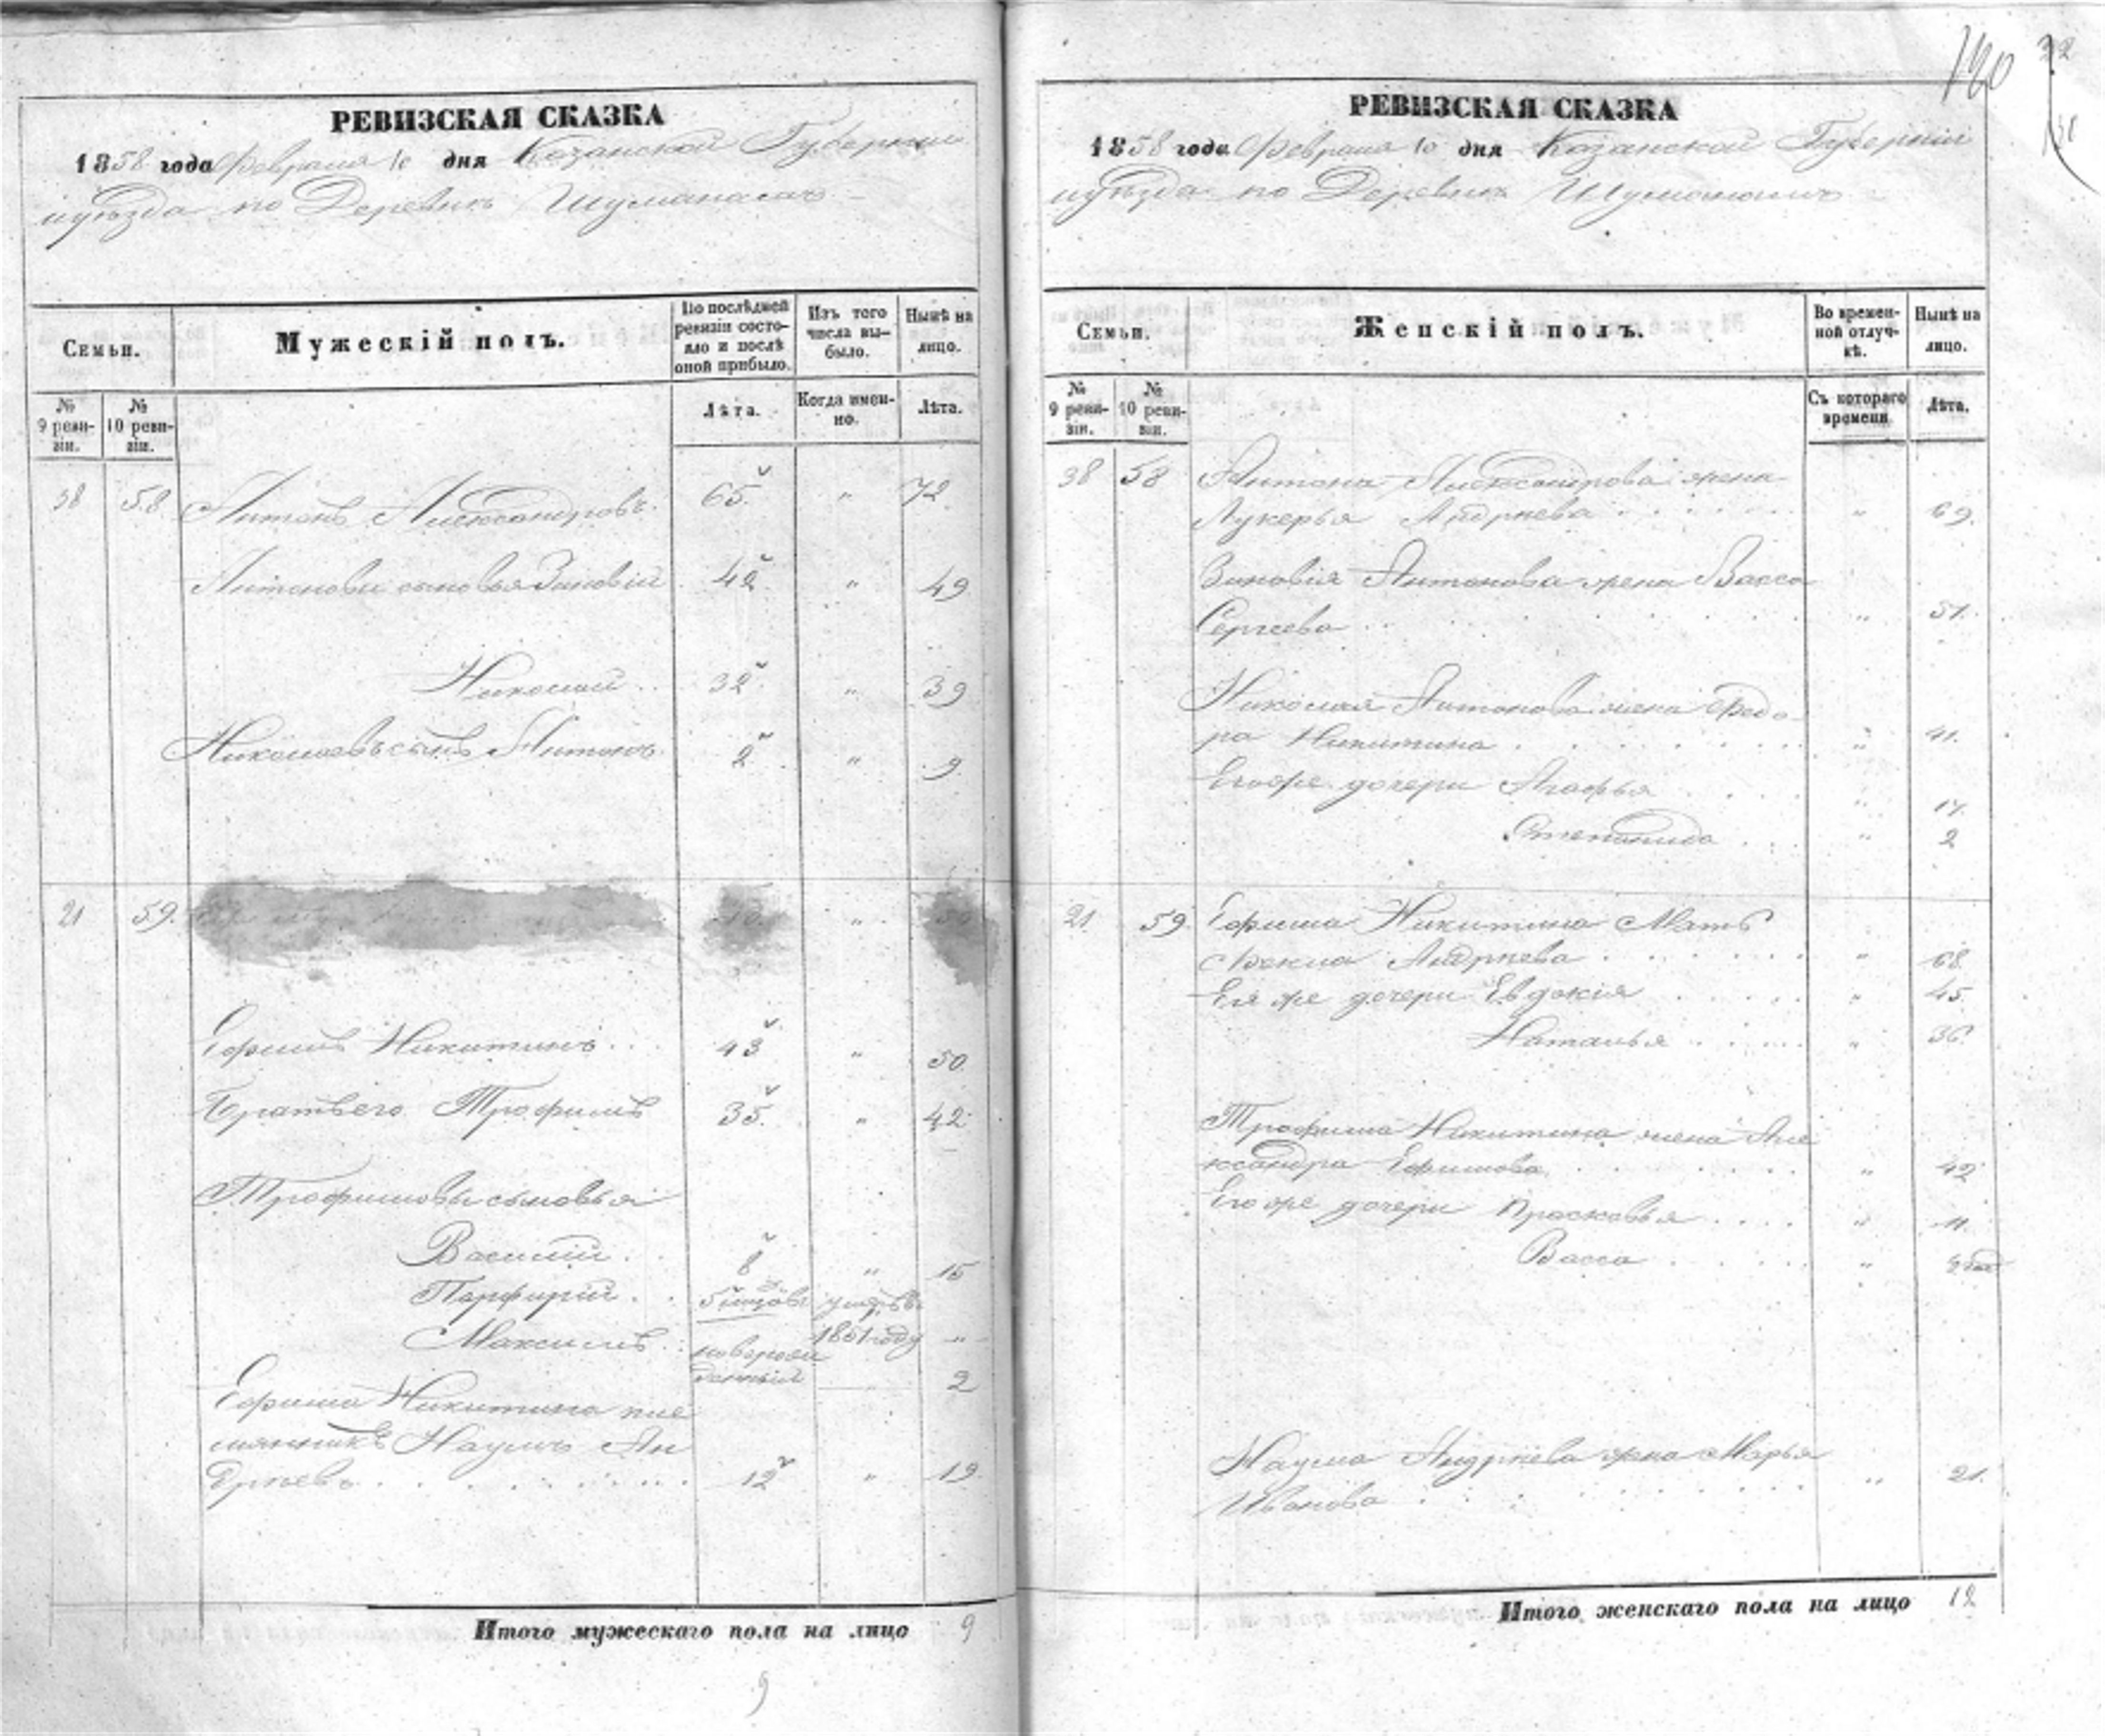 РЕВИЗСКАЯ СКАЗКА
1858 года Февраля 10 дня Казанской Губернии
уѣзда по Деревнѣ
Семьи.
Мужескій полъ.
По послѣдней ревизіи состояло и послѣ оной прибыло.
Изъ того числа выбыло.
Нынѣ на лицо.
№ 9 ревизіи.
№ 10 ревизіи.
Лѣта.
Когда именно.
Лѣта.
38 58 Антонъ Александровъ 65 " 72
Антоновы сыновья Зиновій 42 " 49
Николай 32 " 39
Николаевъ сынъ Антонъ 2 " 9
21 59 "
Ефимъ Никитинъ 43 " 50
Братъ его Трофимъ 35 " 42
Трофимовы сыновья
Василій 8 " 15
Порфирій 5 умеръ въ
1851 году "
Максимъ новорож
денный " 2
Ефима Никитина пле
мянникъ Наумъ Ан
дрѣевъ 12 " 19
Итого мужескаго пола на лицо 9
9
120
РЕВИЗСКАЯ СКАЗКА
1858 года Февраля 10 дня Казанской Губерніи
уѣзда по Деревнѣ
Семьи.
Женскій полъ.
Во временной отлучкѣ.
Нынѣ на лицо.
№ 9 ревизіи.
№ 10 ревизіи.
Съ котораго времени
Лѣта.
38 58 Антона Александрова жена
Лукерья Андрѣева " 69
Зиновія Антонова жена Васса
Сергеева " 51
Николая Антонова жена Федо
ра Никитина " 41
Его же дочери Агафья " 17
Степанида " 2
21 59 Ефима Никитина Мать
Фекла Андрѣева " 68
Ея же дочери Евдокія " 45
Наталья " 36
Трофима Никитина жена Але
ксандра Ефимова " 42
Его же дочери Прасковья " 11
Васса "
Наума Андрѣева жена Марья
Иванова " 21
Итого женскаго пола на лицо 12